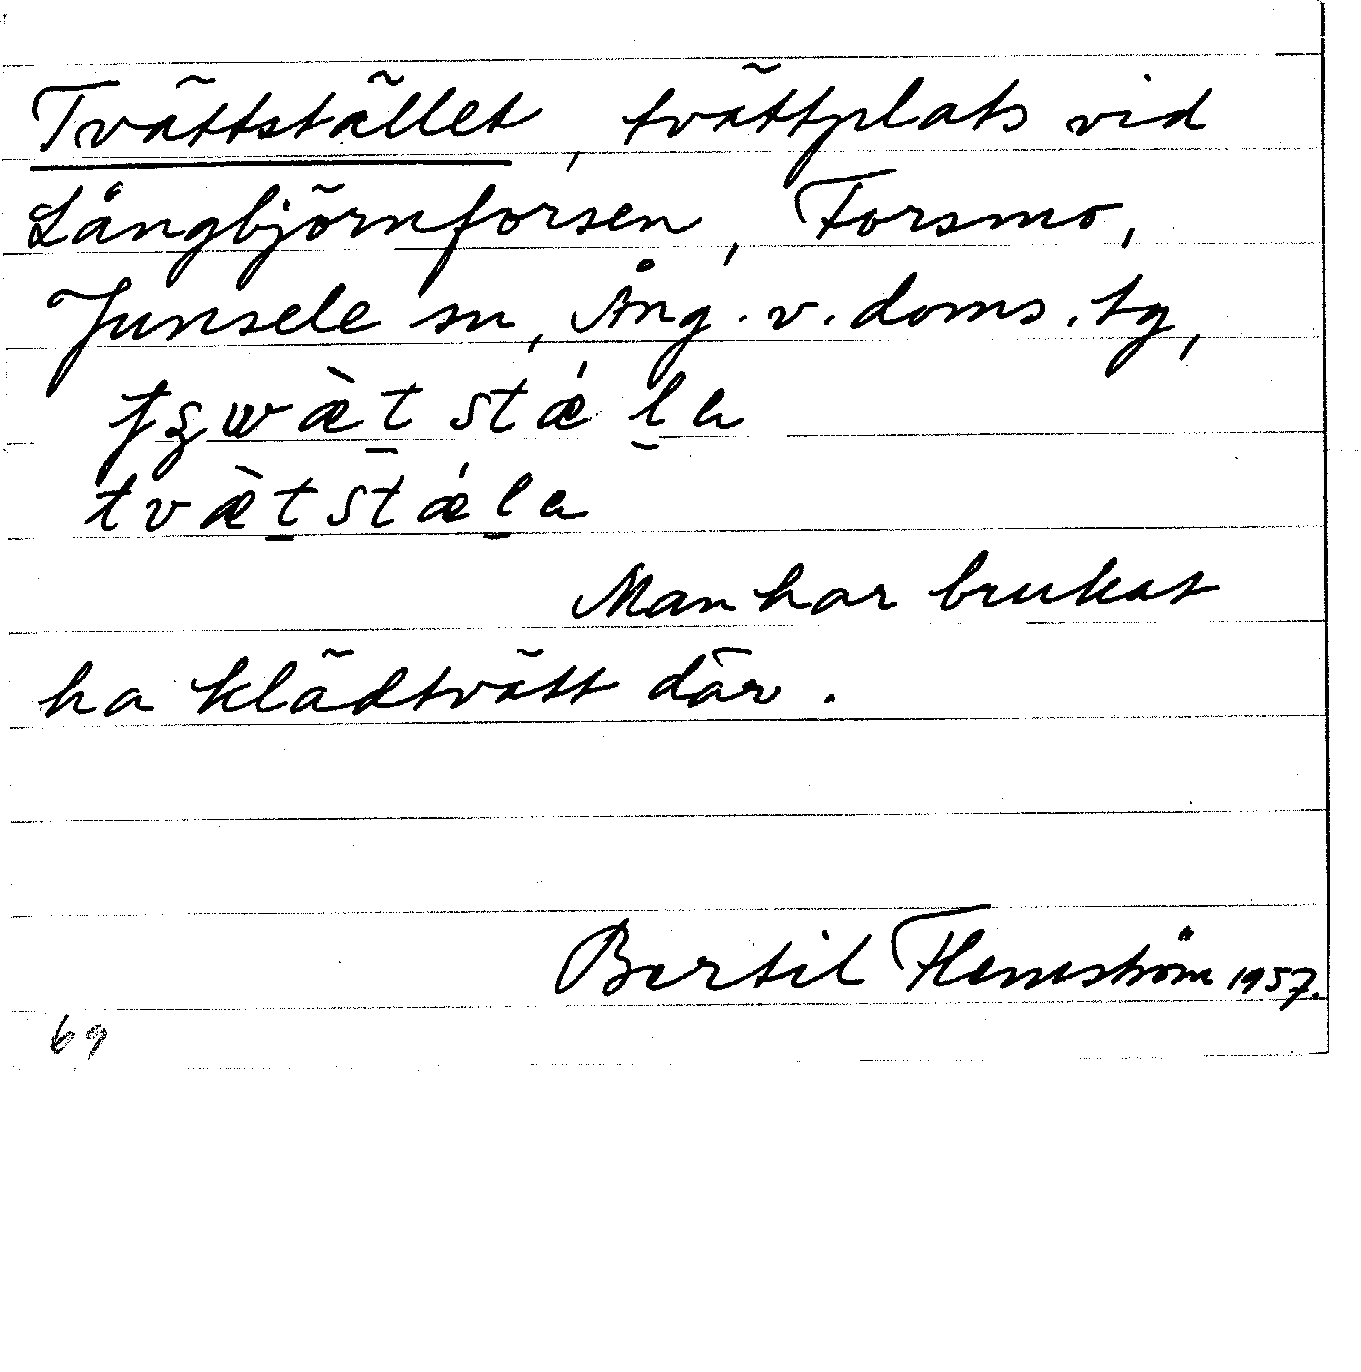 Tvättstället, tvättplats vid
Långbjörnforsen, Forsmo,
Junsele sn, Ång. v. doms. tg,
tvæ̀t stǽla
tvæ̀tstǽla
Man har brukat
ha klädtvätt där.
Bertil Flemström 1957.
69